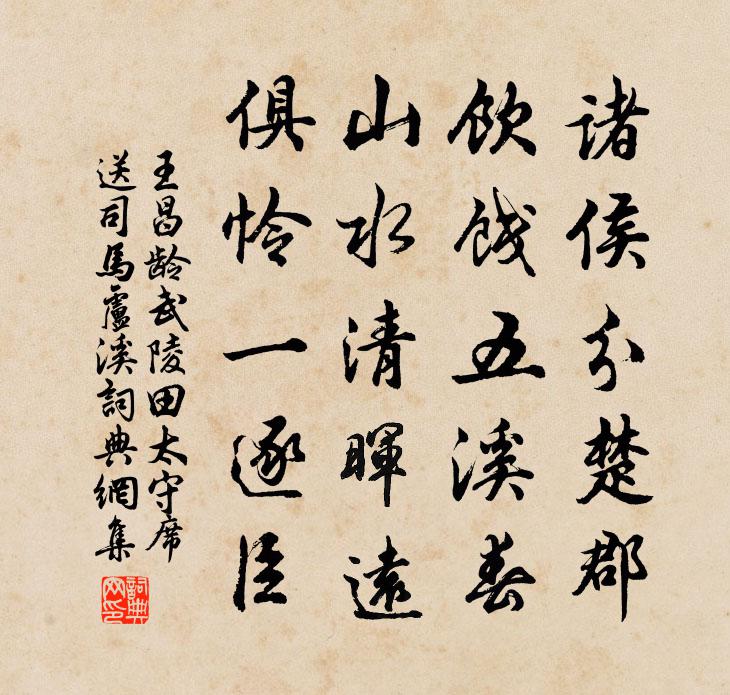 诸侯分楚郡
飲餞五溪春
山水清暉遠
俱怜一逐臣
王昌龄武陵田太守席
送司馬盧溪詞典網集
詞典
网印